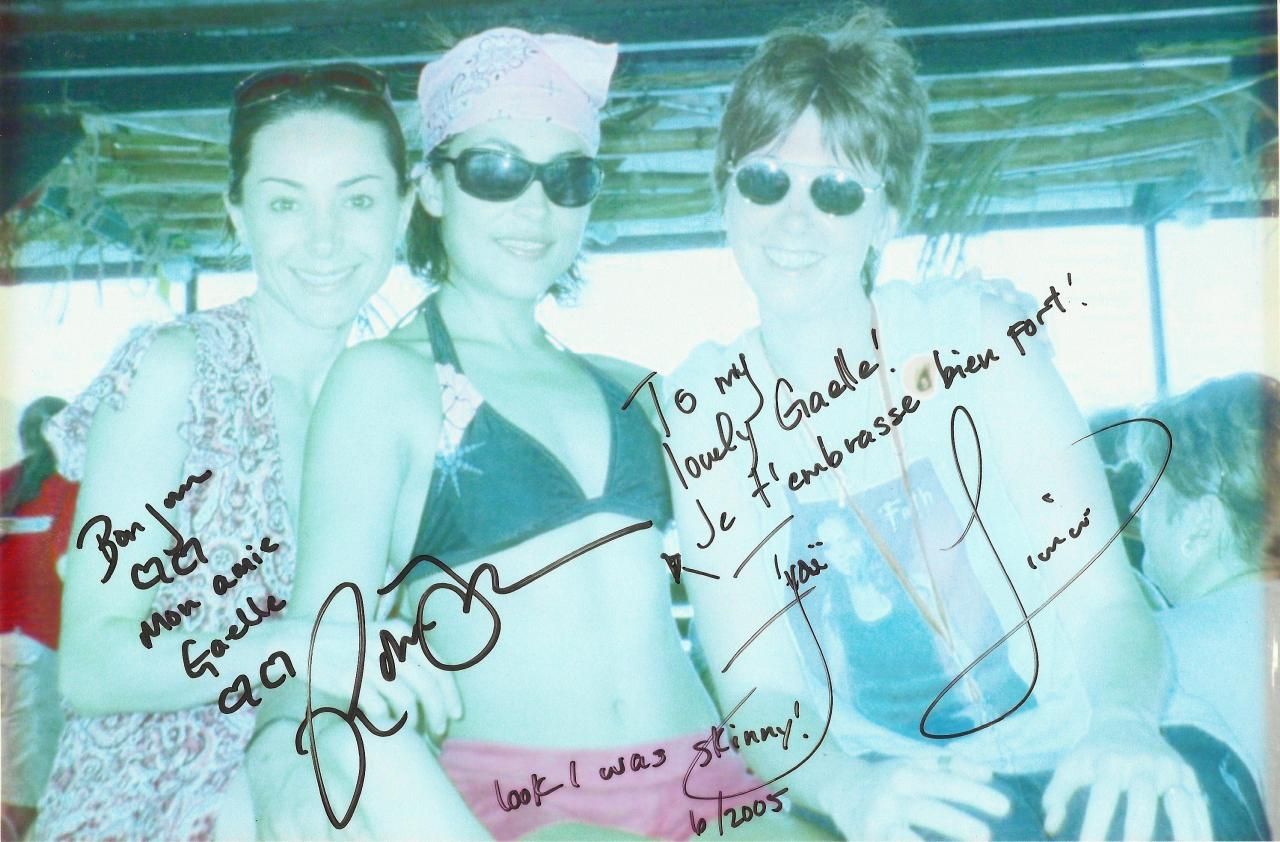 Bonjour
Mon amie
Gaelle
To my
lovely Gaelle!
Je t'embrasse bien fort!
look I was skinny!
6/2005